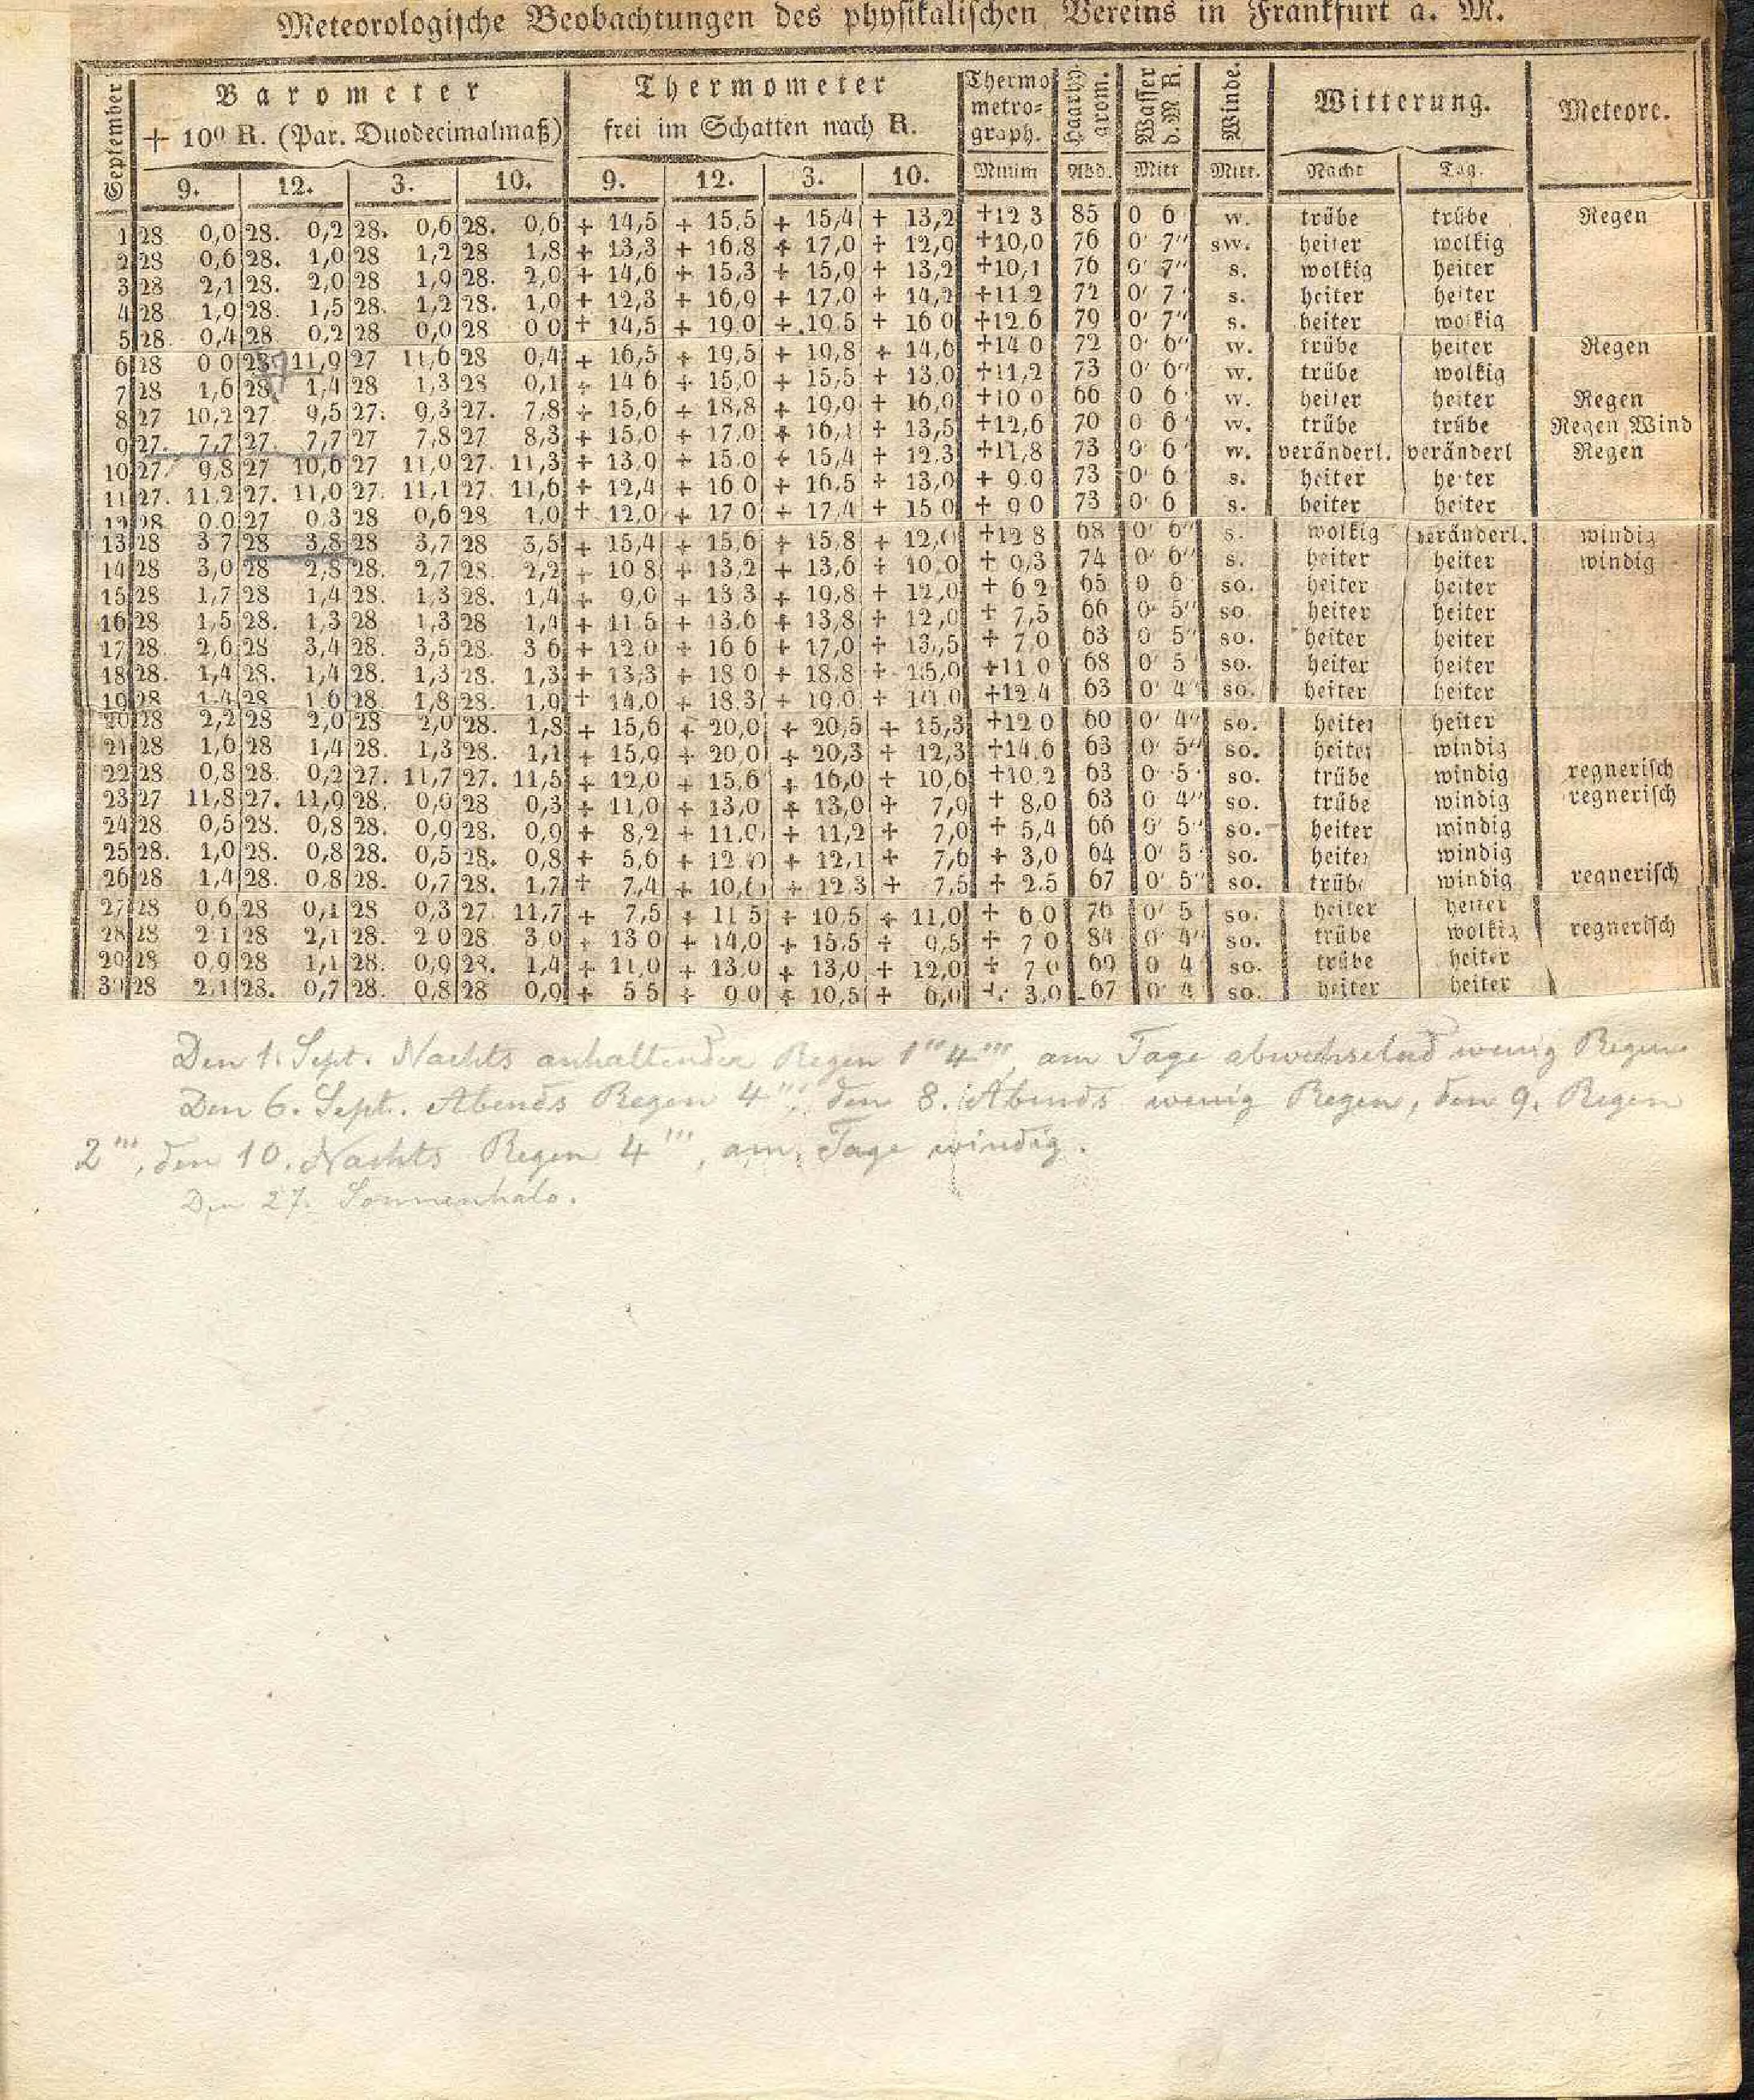 Meteorologische Beobachtungen des physikalischen Vereins in Frankfurt a. M.
September Barometer Thermometer Thermometrograph. Haarhygrom. Wasser d. M R. Winde. Witterung. Meteore.
+ 10⁰ R. (Par. Duodecimalmaß) frei im Schatten nach R.
9. 12. 3. 10. 9. 12. 3. 10. Minim Abd. Mitt Mitt. Nacht Tag.
1 28 0,0 28. 0,2 28. 0,6 28. 0,6 + 14,5 + 15,5 + 15,4 + 13,2 +12 3 85 0 6 w. trübe trübe Regen
2 28 0,6 28. 1,0 28 1,2 28 1,8 + 13,3 + 16,8 + 17,0 + 12,9 +10,0 76 0' 7" sw. heiter wolkig
3 28 2,1 28. 2,0 28 1,9 28. 2,0 + 14,6 + 15,3 + 15,9 + 13,2 +10,1 76 0' 7" s. wolkig heiter
4 28 1,9 28. 1,5 28. 1,2 28. 1,0 + 12,3 + 16,9 + 17,0 + 14,2 +11 2 72 0' 7 s. heiter heiter
5 28. 0,4 28 0,2 28 0,0 28 0 0 + 14,5 + 19 0 + 19 5 + 16 0 +12.6 79 0' 7" s. heiter wolkig
6 28 0 0 28 11,9 27 11,6 28 0,4 + 16,5 + 19,5 + 19,8 + 14,6 +14 0 72 0' 6" w. trübe heiter Regen
7 28 1,6 28 1,4 28 1,3 28 0,1 + 14 6 + 15,0 + 15,5 + 13,0 +11,2 73 0' 6" w. trübe wolkig
8 27 10,2 27 9,5 27. 9,3 27. 7,8 + 15,6 + 18,8 + 19,9 + 16,0 +10 0 66 0 6 w. heiter heiter Regen
9 27. 7,7 27. 7,7 27 7,8 27 8,3 + 15,0 + 17,0 + 16,1 + 13,5 +12,6 70 0 6 w. trübe trübe Regen Wind
10 27 9,8 27 10,6 27 11,0 27. 11,3 + 13,9 + 15,0 + 15,4 + 12,3 +11,8 73 0 6 w. veränderl. veränderl Regen
11 27. 11,2 27. 11,0 27. 11,1 27. 11,6 + 12,4 + 16 0 + 16,5 + 13,0 + 9,9 73 0' 6 s. heiter heiter
12 28 0,0 27 0,3 28 0,6 28 1,0 + 12,0 + 17 0 + 17,4 + 15 0 + 9 0 73 0' 6 s. heiter heiter
13 28 3 7 28 3,8 28 3,7 28 3,5 + 15,4 + 15,6 + 15,8 + 12,0 +12 8 68 0' 6" s. wolkig veränderl. windig
14 28 3,0 28 2,8 28. 2,7 28. 2,2 + 10 8 + 13,2 + 13,6 + 10,0 + 9,3 74 0' 6" s. heiter heiter windig
15 28 1,7 28 1,4 28. 1,3 28. 1,4 + 9,0 + 13 3 + 19,8 + 12,0 + 6 2 65 0 6 so. heiter heiter
16 28 1,5 28. 1,3 28 1,3 28 1,4 + 11 5 + 13,6 + 13,8 + 12,0 + 7,5 66 0' 5" so. heiter heiter
17 28. 2,6 28 3,4 28. 3,5 28. 3 6 + 12,0 + 16 6 + 17,0 + 13,5 + 7,0 63 0 5" so. heiter heiter
18 28. 1,4 28. 1,4 28. 1,3 28. 1,3 + 13,3 + 18 0 + 18,8 + 15,0 +11 0 68 0' 5 so. heiter heiter
19 28 1.4 28 1 6 28. 1,8 28. 1,9 + 14,0 + 18,3 + 19,0 + 14,0 +12,4 63 0' 4" so. heiter heiter
20 28 2,2 28 2,0 28 2,0 28. 1,8 + 15,6 + 20,0 + 20,5 + 15,3 +12 0 60 0' 4" so. heiter heiter
21 28 1,6 28 1,4 28. 1,3 28. 1,1 + 15,9 + 20,0 + 20,3 + 12,3 +14,6 63 0' 5" so. heiter windig
22 28 0,8 28. 0,2 27. 11,7 27. 11,5 + 12,0 + 15,6 + 16,0 + 10,6 +10,2 63 0 5 so. trübe windig regnerisch
23 27 11,8 27. 11,9 28. 0,0 28 0,3 + 11,0 + 13,0 + 13,0 + 7,9 + 8,0 63 0 4" so. trübe windig regnerisch
24 28 0,5 28. 0,8 28. 0,9 28. 0,9 + 8,2 + 11,0 + 11,2 + 7,0 + 5,4 66 0' 5" so. heiter windig
25 28. 1,0 28. 0,8 28. 0,5 28. 0,8 + 5,6 + 12 0 + 12,1 + 7,6 + 3,0 64 0' 5 so. heiter windig
26 28 1,4 28. 0,8 28. 0,7 28. 1,7 + 7,4 + 10,6 + 12 3 + 7,5 + 2.5 67 0' 5" so. trübe windig regnerisch
27 28 0,6 28 0,1 28 0,3 27 11,7 + 7,5 + 11 5 + 10,5 + 11,0 + 6,0 76 0' 5 so. heiter heiter
28 28 2 1 28 2,1 28. 2 0 28 3,0 + 13 0 + 14,0 + 15,5 + 9,5 + 7 0 84 0' 4" so. trübe wolkig regnerisch
29 28 0,9 28 1,1 28. 0,9 28. 1,4 + 11,0 + 13,0 + 13,0 + 12,0 + 7 0 69 0 4 so. trübe heiter
30 28 2,1 28. 0,7 28. 0,8 28 0,9 + 5 5 + 9 0 + 10,5 + 6,0 + 3,0 67 0' 4 so. heiter heiter
Den 1. Sept. Nachts anhaltender Regen 1" 4"', am Tage abwechselnd wenig Regen
Den 6. Sept. Abends Regen 4"', den 8. Abends wenig Regen, den 9. Regen
2"', den 10. Nachts Regen 4"', am Tage windig.
Den 27. Sonnenhalo.